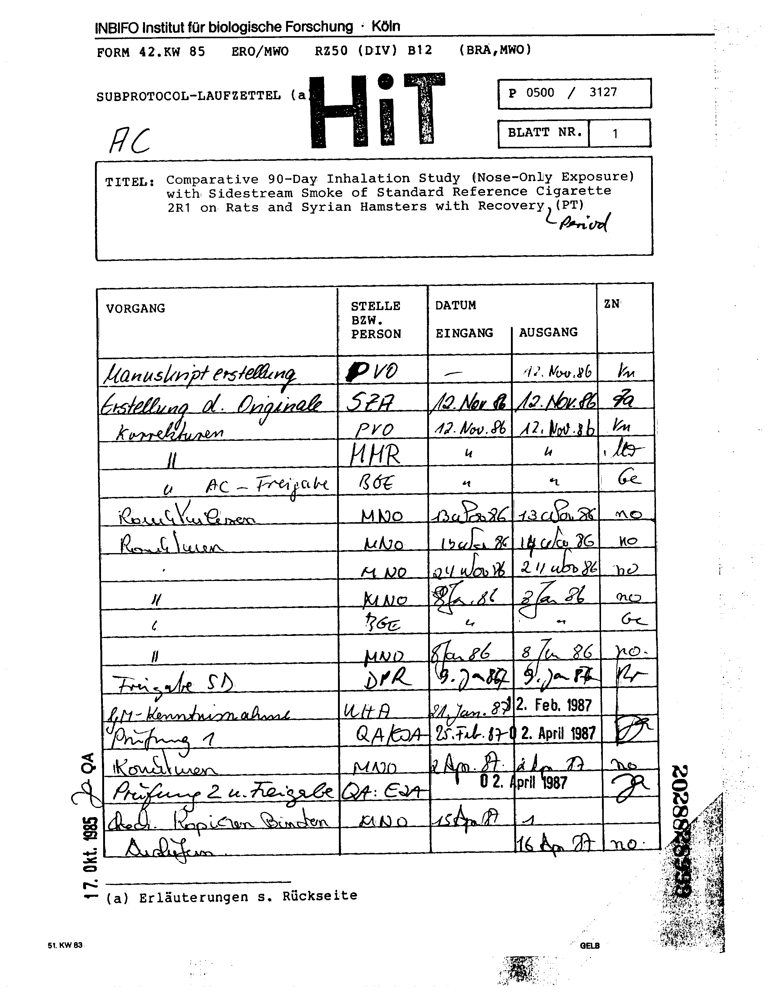 INBIFO Institut für biologische Forschung · Köln
FORM 42.KW 85 ERO/MWO RZ50 (DIV) B12 (BRA,MWO)
SUBPROTOCOL-LAUFZETTEL (a
HiT
P 0500 / 3127
AC
BLATT NR. 1
TITEL: Comparative 90-Day Inhalation Study (Nose-Only Exposure)
with Sidestream Smoke of Standard Reference Cigarette
2R1 on Rats and Syrian Hamsters with Recovery (PT)
Period
VORGANG STELLE BZW. PERSON DATUM EINGANG AUSGANG ZN
Manuskripterstellung PVO — 12. Nov. 86 Vn
Erstellung d. Originale SZA 12. Nov 86 12. Nov. 86
Korrekturen PVO 12. Nov. 86 12. Nov. 86 Vn
" MMR " "
" AC - Freigabe BGE " " Ge
MNO 86 86 no
MNO 86 86 no
MNO 24 Nov 86 24 Nov 86 no
" MNO 8 Jan. 86 8 Jan 86 no
BGE " " Ge
" MNO 8 Jan 86 8 Jan 86 no.
Freigabe SD DPR 9. Jan 87 9. Jan 87
GM-Kenntnisnahme UHA 21. Jan. 87 2. Feb. 1987
Prüfung 1 QA 25. Feb. 87 02. April 1987
MNO 2 Apr. 87 2 Apr 87 no
Prüfung 2 u. Freigabe QA: 02. April 1987
Kopieren Binden MNO 15 Apr 87 1
16 Apr 87 no.
17. Okt. 1985 QA
(a) Erläuterungen s. Rückseite
51. KW 83
GELB